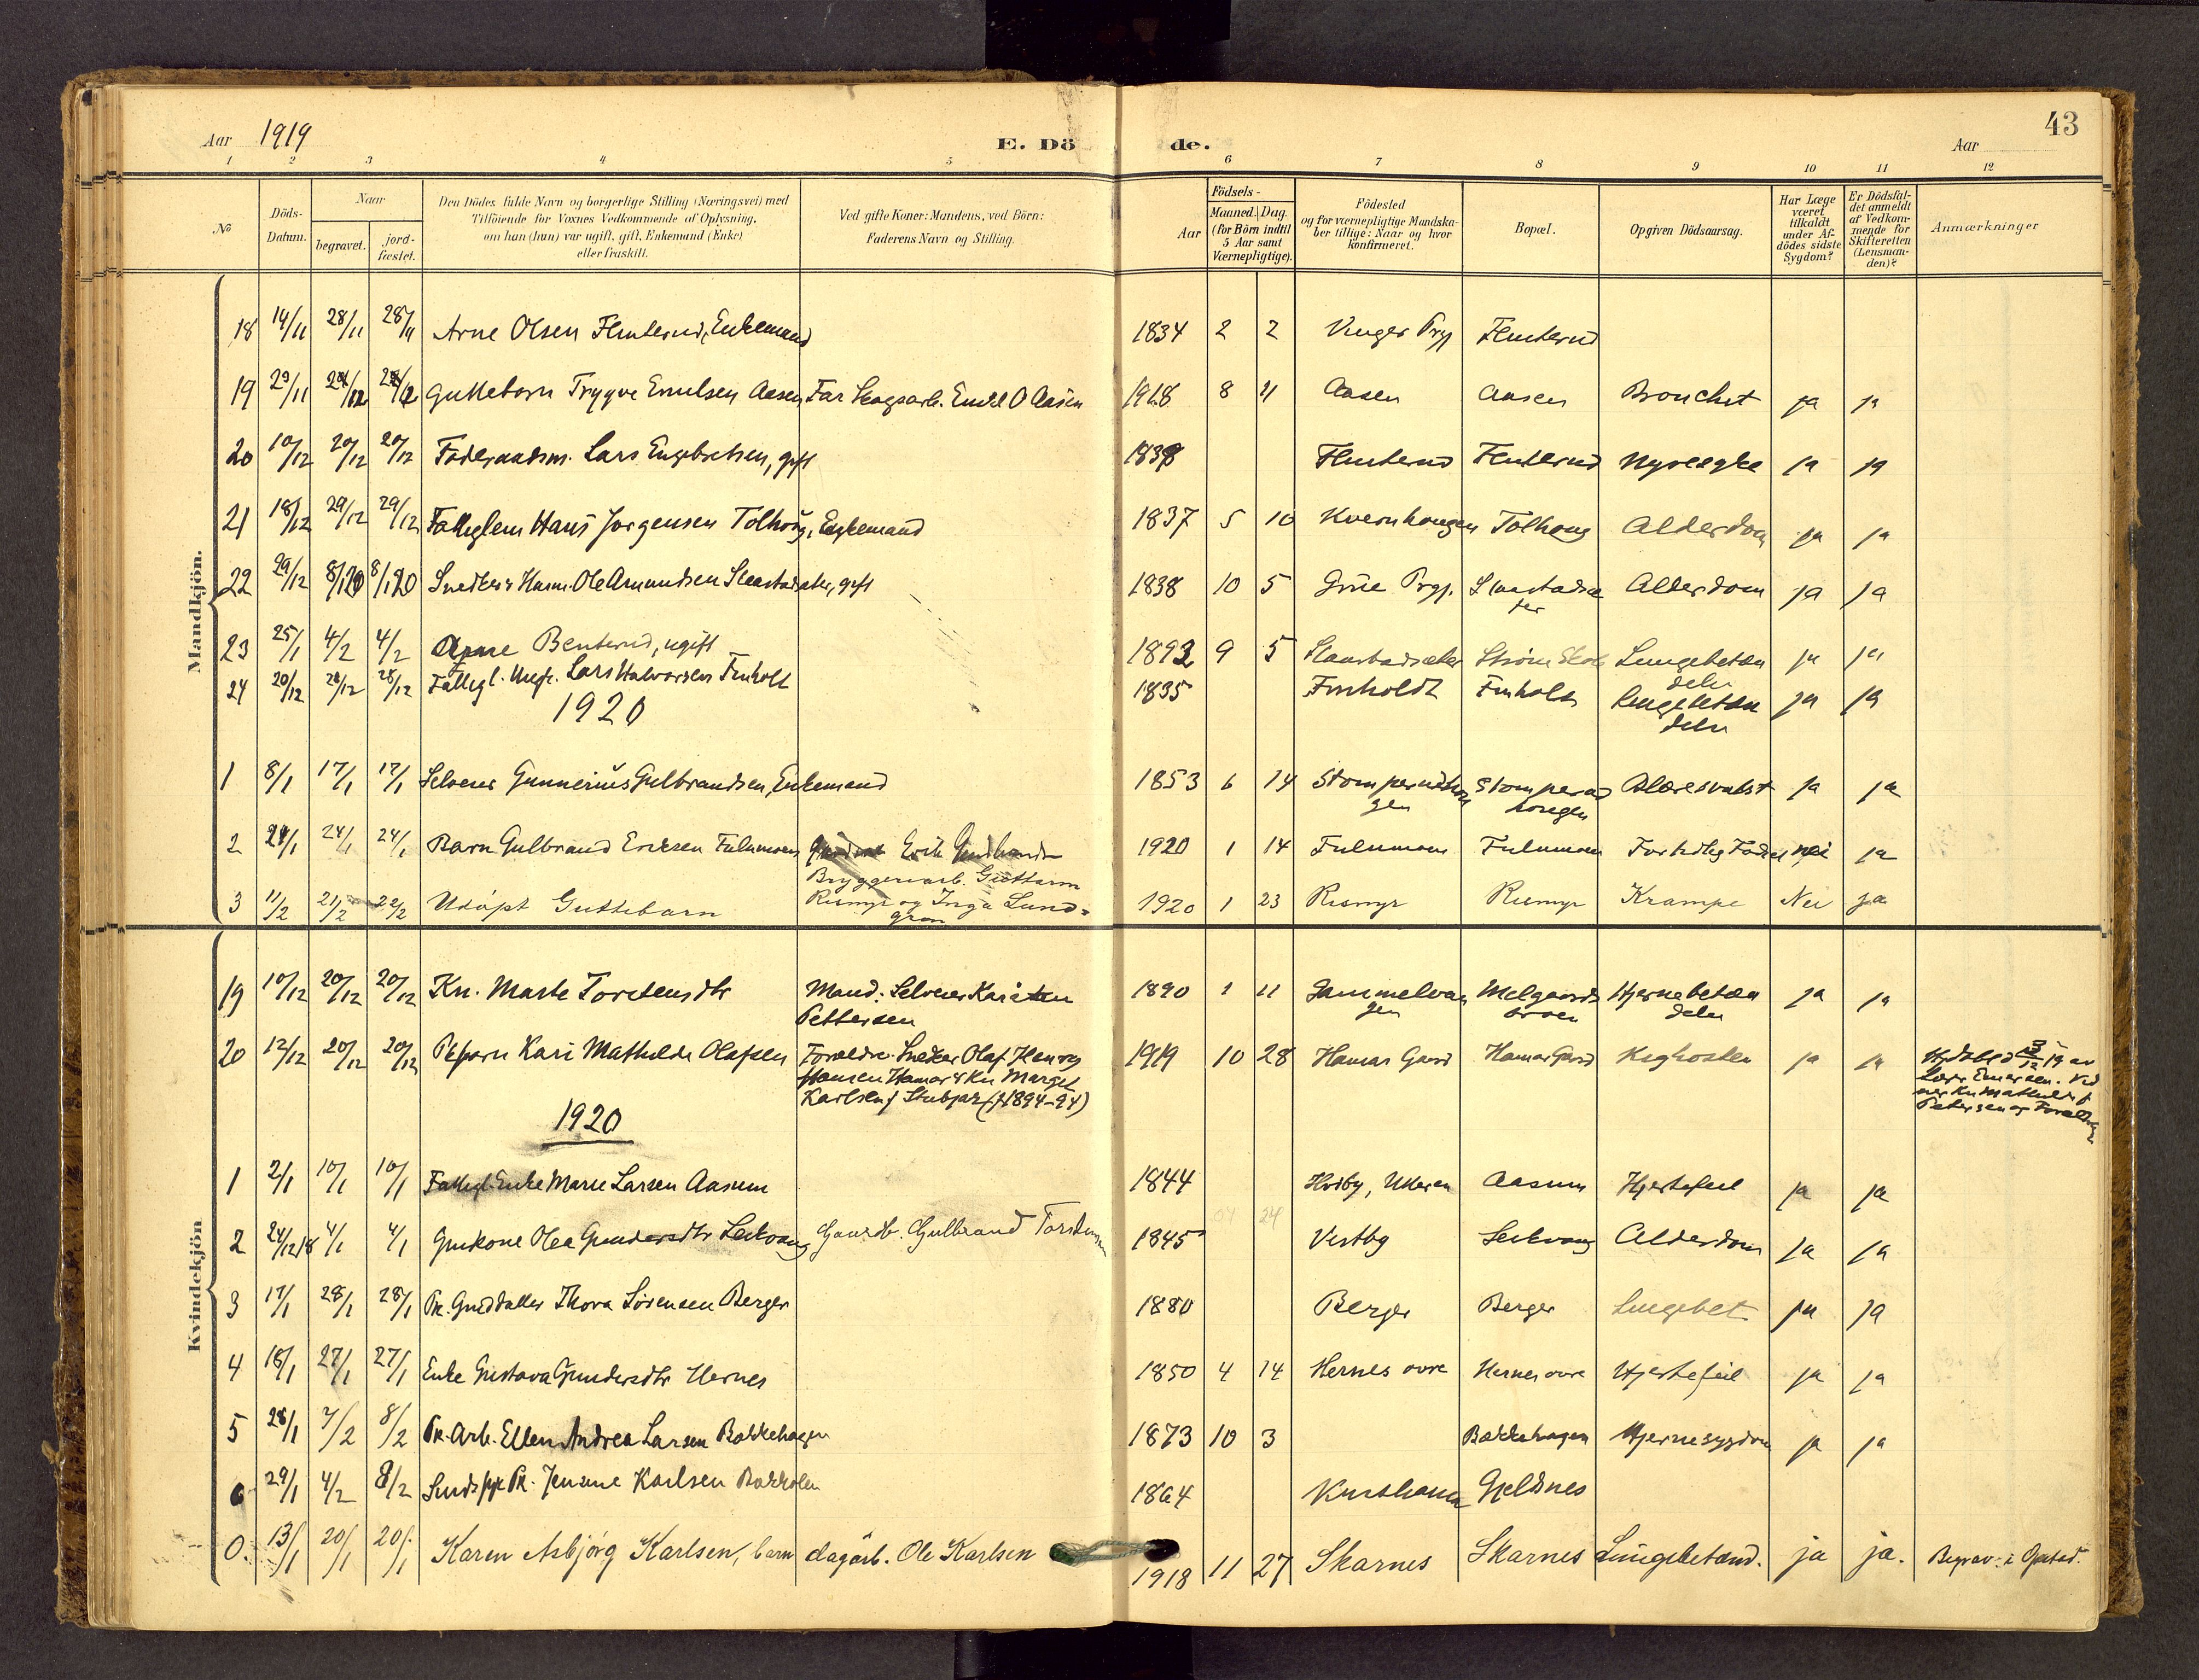 Aar 1919
E. Dö
de.
Aar
43
1 2 3 4 5 6 7 8 9 10 11 12
No
Döds-
Datum.
Naar
begravet.
jord-
fæstet.
Den Dödes fulde Navn og borgerlige Stilling (Næringsvei) med
Tilföiende for Voxnes Vedkommende af Oplysning,
om han (hun) var ugift, gift, Enkemand (Enke)
eller fraskilt.
Ved gifte Koner: Mandens, ved Börn:
Faderens Navn og Stilling.
Födsels-
Aar
Maaned. Dag.
(for Börn indtil
5 Aar samt
Værnepligtige).
Födested
og for værnepligtige Mandska-
ber tillige: Naar og hvor
konfirmeret.
Bopæl.
Opgiven Dödsaarsag.
Har Læge
været
tilkaldt
under Af-
dödes sidste
Sygdom?
Er Dödsfal-
det anmeldt
af Vedkom-
mende for
Skifteretten
(Lensman-
den)?
Anmærkninger
Mandkjön.
18 14/11 28/11 28/11 Arne Olsen Flinterud, Enkemand 1834 2 2 Vinger Prgj Flinterud
19 29/11 Guttebarn Trygve Emilsen Aasen Far Skogsarb. Emil O Aasen 1918 8 11 Aasen Aasen Bronchit ja ja
20 10/12 20/12 20/12 Föderaadsm. Lars Engebretsen, gift 1838 Flinterud Flinterud Nyresyke ja ja
21 18/12 29/12 29/12 Fattiglem Hans Jorgensen Tolhoug, Enkemand 1837 5 10 Kvernhougen Tolhoug Alderdom ja ja
22 29/12 8/1 20 8/1 20 Snedker & Husm. Ole Amundsen Slaastadsæter, gift 1838 10 5 Grue Prgj. Slaastadsæ
ter Alderdom ja ja
23 25/1 4/2 4/2 Arne Benterud, ugift 1892 9 5 Slaastadsæter Ström Skog Lungebetæn
delse ja ja
24 20/12 28/12 28/12 Fattigl. Ungk. Lars Halvorsen Finholt 1835 Finholdt Finholt Lungebetæn
delse ja ja
1920
1 8/1 17/1 17/1 Selveier Gunnerius Gulbrandsen, Enkemand 1853 6 14 Stomperudhou
gen Stomperud
hougen Blæresvulst ja ja
2 24/1 24/1 24/1 Barn Gulbrand Eriksen Fulumoen Erik Gudbrands 1920 1 14 Fulumoen Fulumoen For tidlig Födsel nei ja
Bryggeriarb. Guttorm
3 11/2 21/2 22/2 Udöpt Guttebarn Rismyr og Inga Lund=
gren 1920 1 23 Rismyr Rismyr Krampe Nei ja
Kvindekjön
19 10/12 20/12 20/12 Kn. Marte Torstensdtr Mand: Selveier Karsten
Pettersen 1890 1 11 Gammelvan
gen Melgaards
broen Hjernebetæn
delse ja ja
20 12/12 20/12 20/12 Pikebarn Kari Mathilde Olafsen Forældre: Snedker Olaf Henry
Hansen Hamar & Kn Marget
Karlsen f Stubjar (f 1894-94) 1919 10 28 Hamar Gaard Hamar Gaard Kighosten ja ja Hjdöbt 3/12 19 av
Lærer Emersen. Vid
ner Kn Mathilde
Petersen og Foreldrene
1920
1 2/1 10/1 10/1 Fattigl. Enke Marie Larsen Aasum 1844 Hvalby, Ullern Aasum Hjertefeil ja ja
2 24/12 18 4/1 4/1 Grukone Olea Gundersdtr Seikvang Gaardb. Gulbrand Torstensen 1845 04 24 Vestby Seikvang Alderdom ja ja
3 17/1 28/1 28/1 Pk. Grddatter Thora Sörensen Berger 1880 Berger Berger Lungebet ja ja
4 18/1 27/1 27/1 Enke Gustava Gundersdtr Hernes 1850 4 14 Hernes övre Hernes övre Hjertefeil ja ja
5 28/1 7/2 8/2 Pk. Arb. Ellen Andrea Larsen Bakkehagen 1873 10 3 Bakkehagen Hjernesygdom ja ja
6 29/1 4/2 8/2 Sindssyk Pk. Jensine Karlsen Bakkolen 1864 Gjeldnes
0. 13/1 20/1 20/1 Karen Asbjörg Karlsen, barn dagarb. Ole Karlsen 1918 11 27 Skarnes Skarnes Lungebetænd. ja ja. Begrav. i Opstad.